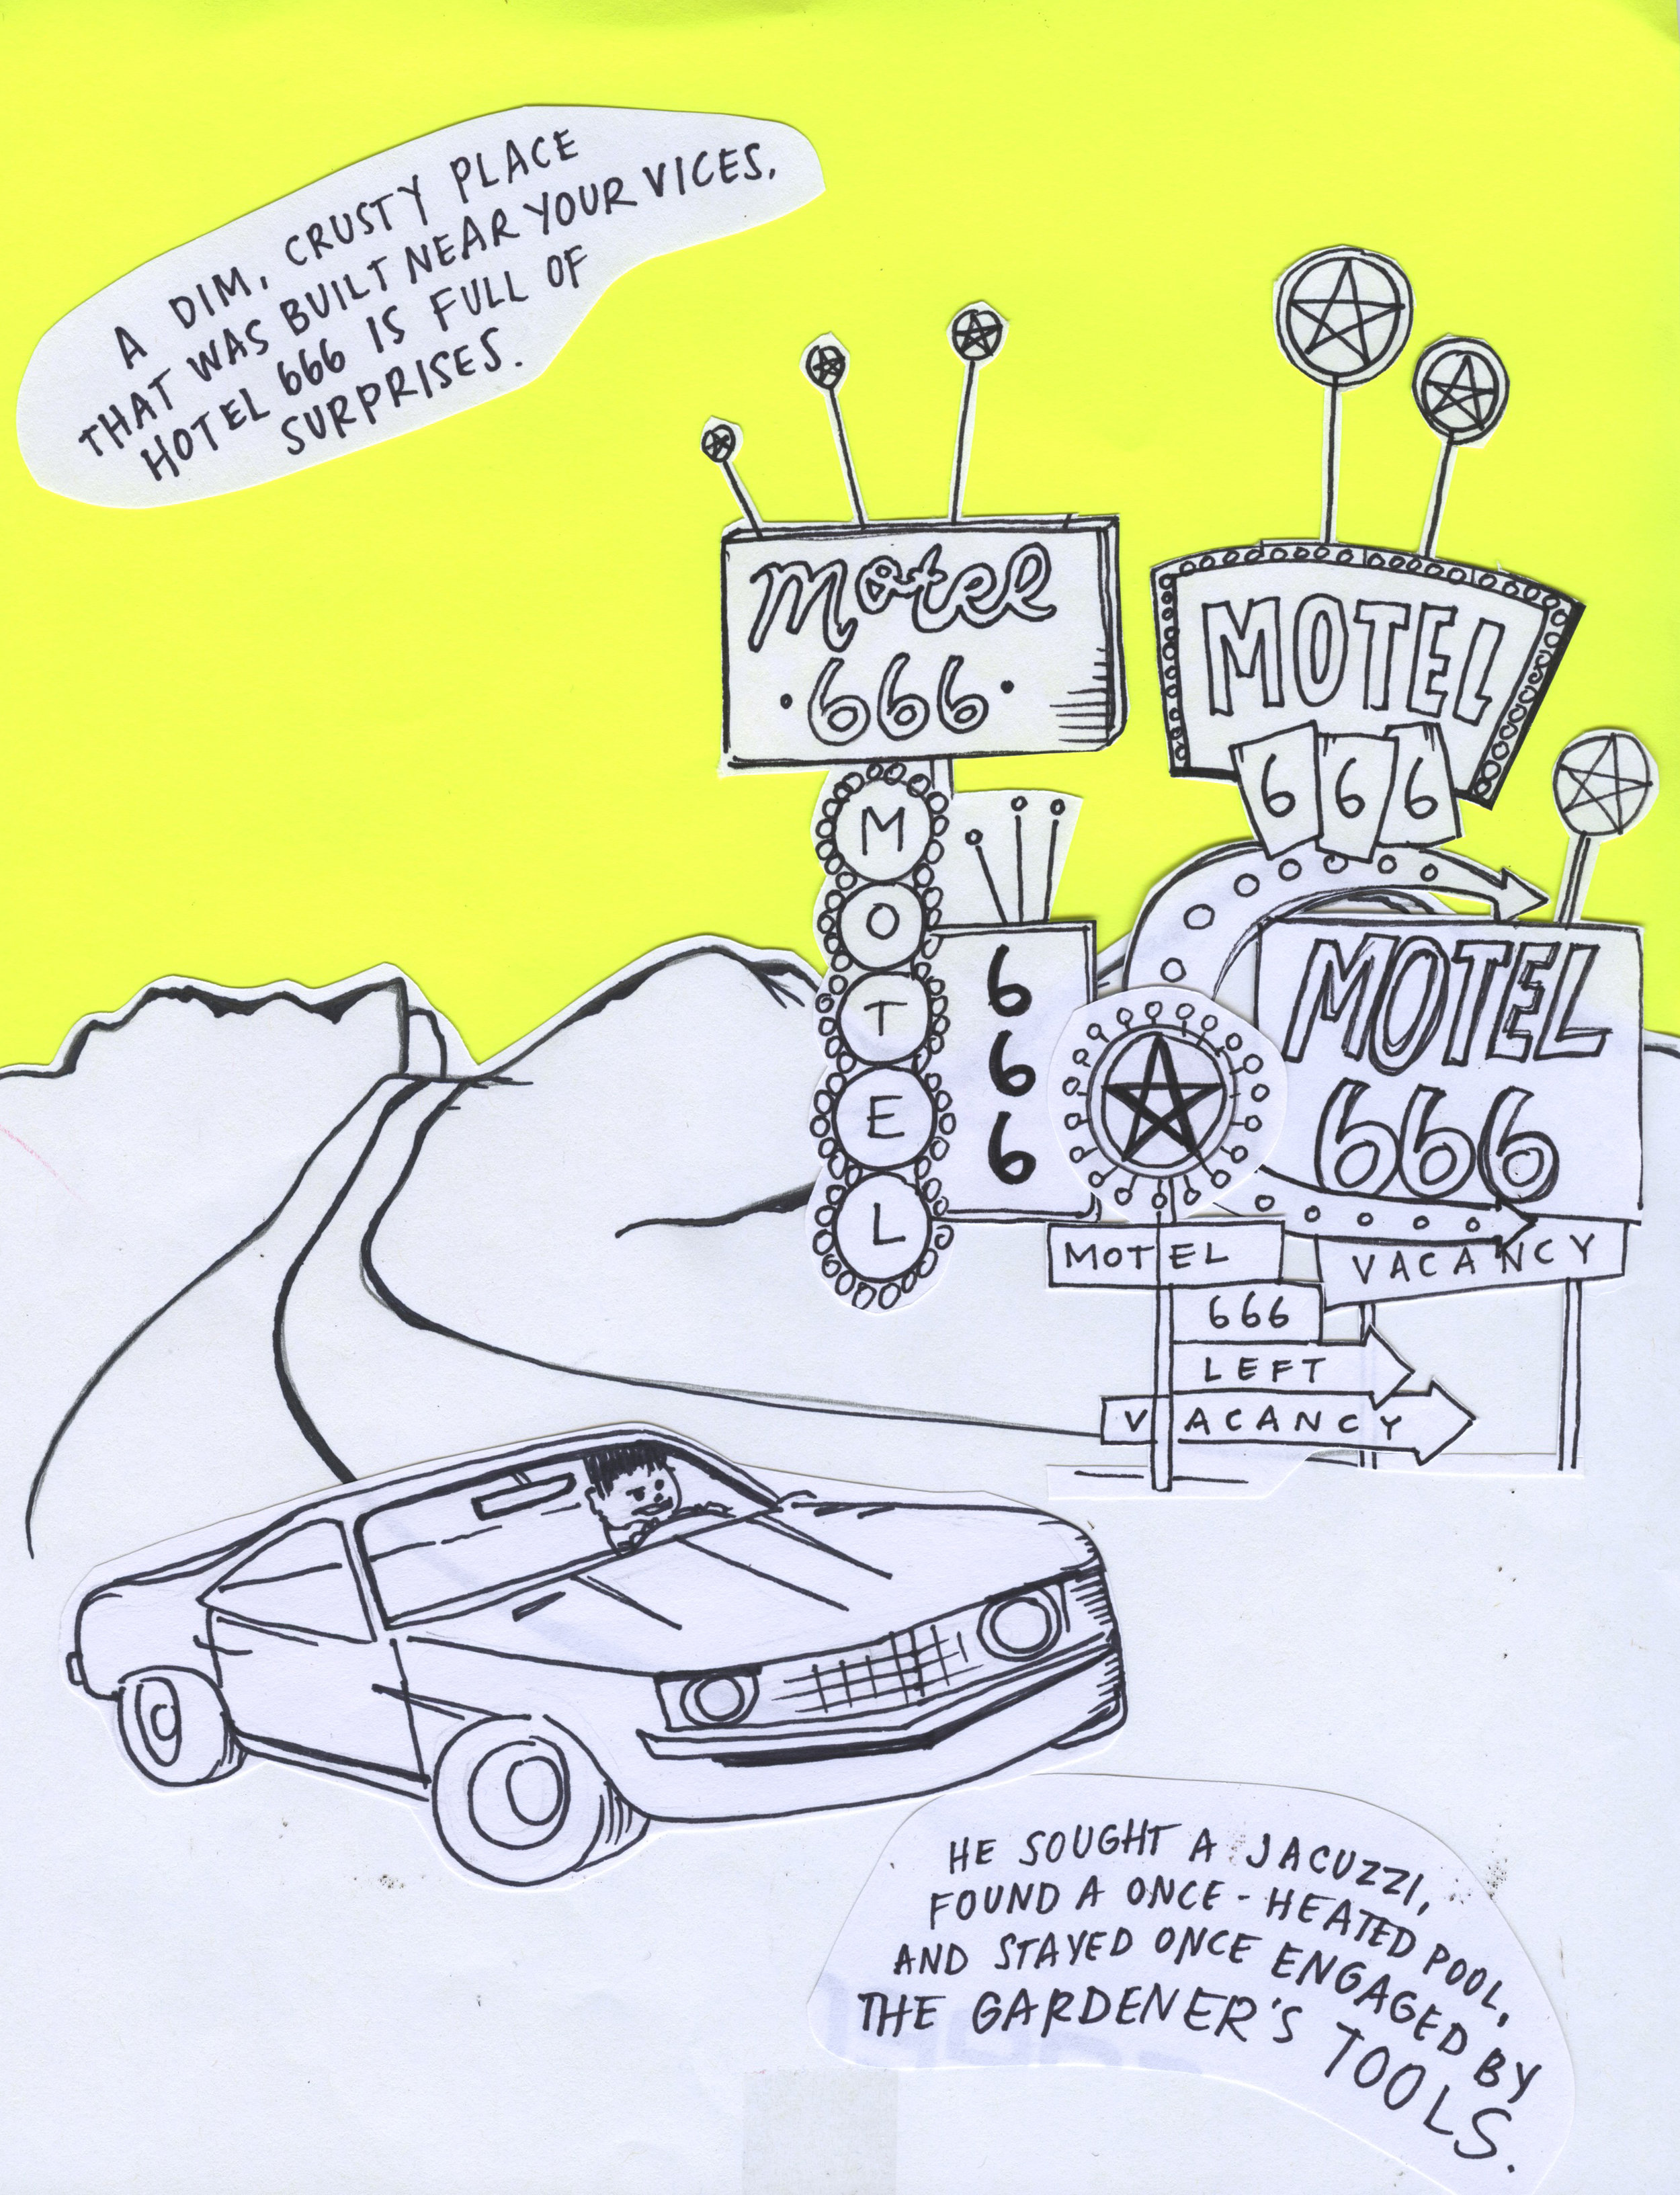 A DIM, CRUSTY PLACE
THAT WAS BUILT NEAR YOUR VICES,
HOTEL 666 IS FULL OF
SURPRISES.
Motel
·666·
MOTEL
6 6 6
MOTEL
6
6
6
MOTEL
666
MOTEL
VACANCY
666
LEFT
VACANCY
HE SOUGHT A JACUZZI,
FOUND A ONCE-HEATED POOL,
AND STAYED ONCE ENGAGED BY
THE GARDENER'S TOOLS.